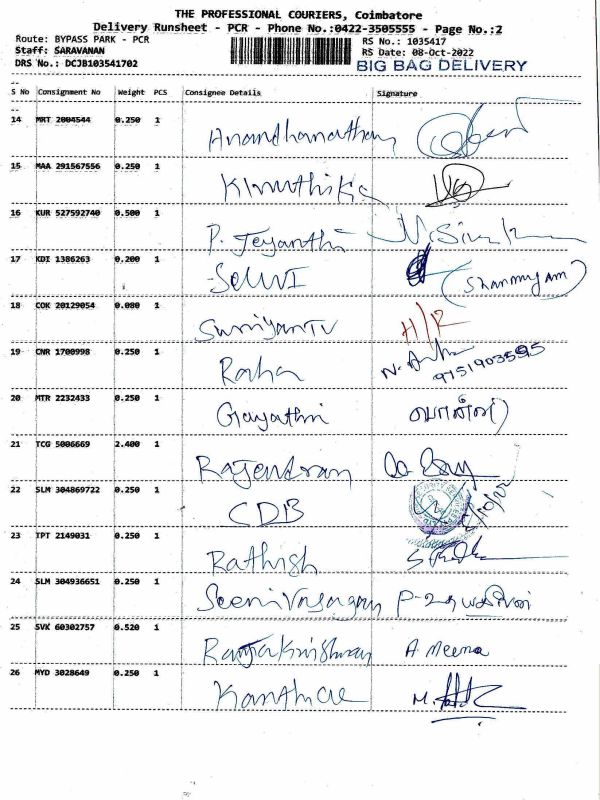 THE PROFESSIONAL COURIERS, Coimbatore
Delivery Runsheet - PCR - Phone No.:0422-3505555 - Page No.:2
Route: BYPASS PARK - PCR RS No.: 1035417
Staff: SARAVANAN RS Date: 08-Oct-2022
DRS No.: DCJB103541702 BIG BAG DELIVERY
S No Consignment No Weight PCS Consignee Details Signature
14 MRT 2004544 0.250 1 Anandhanathan
15 MAA 291567556 0.250 1 Kiruthika
16 KUR 527592740 0.500 1 P. Jeyanthi
17 KDI 1386263 0.200 1 Selvi (Shanmugam)
18 COK 20129054 0.080 1 H/R
19 CNR 1700998 0.250 1 N. 9751903595
20 MTR 2232433 0.250 1 Gayathri
21 TCG 5006669 2.400 1 Rajendran
22 SLM 304869722 0.250 1 CDB 8/10/22
23 TPT 2149031 0.250 1 Rathish
24 SLM 304936651 0.250 1
25 SVK 60302757 0.520 1 A Meena
26 MYD 3028649 0.250 1